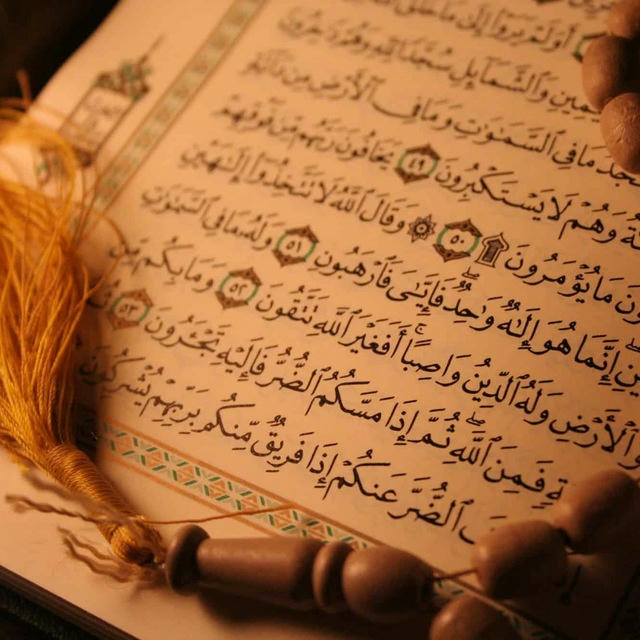 أَوَلَمْ يَرَوْا۟ إِلَىٰ مَا خَلَقَ
ـمِينِ وَٱلشَّمَآئِلِ سُجَّدًا لِّلَّهِ وَهُمْ دَٰخِرُونَ
ـجُدُ مَا فِى ٱلسَّمَٰوَٰتِ وَمَا فِى ٱلْأَرْضِ مِن دَآبَّةٍ
ـةُ وَهُمْ لَا يَسْتَكْبِرُونَ ٤٩ يَخَافُونَ رَبَّهُم مِّن فَوْقِهِمْ
ـونَ مَا يُؤْمَرُونَ ۩ ٥٠ ۞ وَقَالَ ٱللَّهُ لَا تَتَّخِذُوٓا۟ إِلَٰهَيْنِ
ـيْنِ إِنَّمَا هُوَ إِلَٰهٌ وَٰحِدٌ فَإِيَّٰىَ فَٱرْهَبُونِ ٥١ وَلَهُۥ مَا فِى ٱلسَّمَٰوَٰتِ
وَٱلْأَرْضِ وَلَهُ ٱلدِّينُ وَاصِبًا أَفَغَيْرَ ٱللَّهِ تَتَّقُونَ ٥٢ وَمَا بِكُم مِّن
ـةٍ فَمِنَ ٱللَّهِ ثُمَّ إِذَا مَسَّكُمُ ٱلضُّرُّ فَإِلَيْهِ تَجْـَٔرُونَ ٥٣
ٱلضُّرَّ عَنكُمْ إِذَا فَرِيقٌ مِّنكُم بِرَبِّهِمْ يُشْرِكُونَ